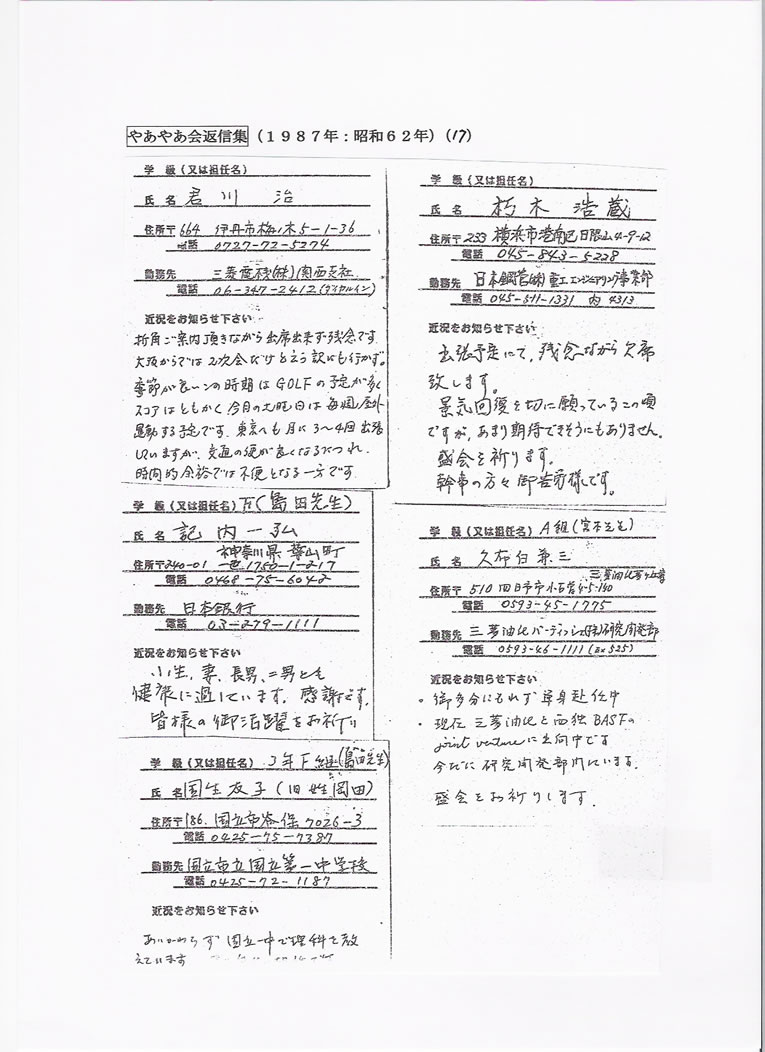 やあやあ会返信集（１９８７年：昭和６２年）(17)
学　級（又は担任名）
氏　名 君川　治
住所〒664 伊丹市梅ノ木5-1-36
電話 0727-72-5274
勤務先 三菱商橡(株)関西支社
電話 06-347-2412(ダイヤルイン)
近況をお知らせ下さい
折角ご案内頂きながら出席出来ず残念です
大阪からでは2次会だけと云う訳にも行かず。
季節が良いこの時期はGOLFの予定が多く
スコアはともかく今月の土曜日は毎週屋外
運動する予定です。東京へも月に3〜4回出張
していますが、交通の便が良くなるにつれ、
時間的余裕では不便となる一方です
学　級（又は担任名）F(島田先生)
氏　名 記内一弘
神奈川県葉山町
住所〒240-01 一色1750-1-217
電話 0468-75-6042
勤務先 日本銀行
電話 03-279-1111
近況をお知らせ下さい
小生、妻、長男、二男とも
健康に過しています。感謝です。
皆様の御活躍をお祈り
学　級（又は担任名）3年F組(島田先生)
氏　名 国生友子(旧姓岡田)
住所〒186. 国立市谷保7026-3
電話 0425-75-7387
勤務先 国立市立国立第一中学校
電話 0425-72-1187
近況をお知らせ下さい
あいかわらず国立一中で理科を教
えています
学　級（又は担任名）
氏　名 朽木浩蔵
住所〒233 横浜市港南区日限山4-9-12
電話 045-843-5228
勤務先 日本鋼管(株)重工エンジニアリング事業部
電話 045-511-1331 内4313
近況をお知らせ下さい
出張予定にて、残念ながら欠席
致します。
景気回復を切に願っているこの頃
ですが、あまり期待できそうにもありません。
盛会を祈ります。
幹事の方々御苦労様です。
学　級（又は担任名）A組(宮本先生)
氏　名 久布白兼三
住所〒510 四日市市小古曽4-5-140
電話 0593-45-1775
勤務先 三菱油化バーディッシェ(株)研究開発部
電話 0593-46-1111(Ex 525)
近況をお知らせ下さい
・御多分にもれず単身赴任中
・現在三菱油化と西独BASFの
joint ventureに出向中です
今だに研究開発部内にいます。
盛会をお祈りします.